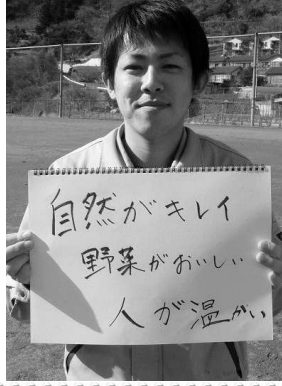 自然がキレイ
野菜がおいしい
人が温かい